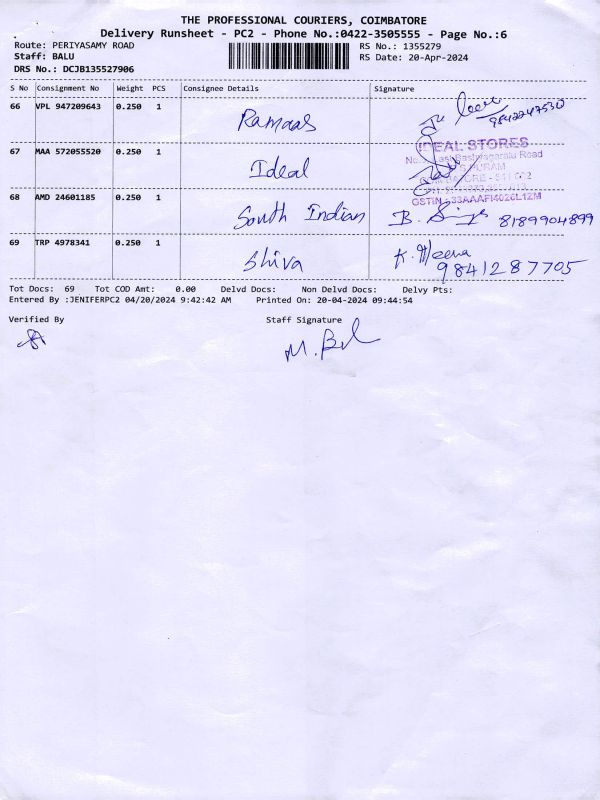 THE PROFESSIONAL COURIERS, COIMBATORE
Delivery Runsheet - PC2 - Phone No.:0422-3505555 - Page No.:6
Route: PERIYASAMY ROAD
RS No.: 1355279
Staff: BALU
RS Date: 20-Apr-2024
DRS No.: DCJB135527906
S No Consignment No Weight PCS Consignee Details Signature
66 VPL 947209643 0.250 1 Ramaas
67 MAA 572055520 0.250 1 Ideal
IDEAL STORES
68 AMD 24601185 0.250 1 South Indian B. 8189904899
69 TRP 4978341 0.250 1 Shiva K. Meena
9841287705
Tot Docs: 69 Tot COD Amt: 0.00 Delvd Docs: Non Delvd Docs: Delvy Pts:
Entered By :JENIFERPC2 04/20/2024 9:42:42 AM Printed On: 20-04-2024 09:44:54
Verified By Staff Signature